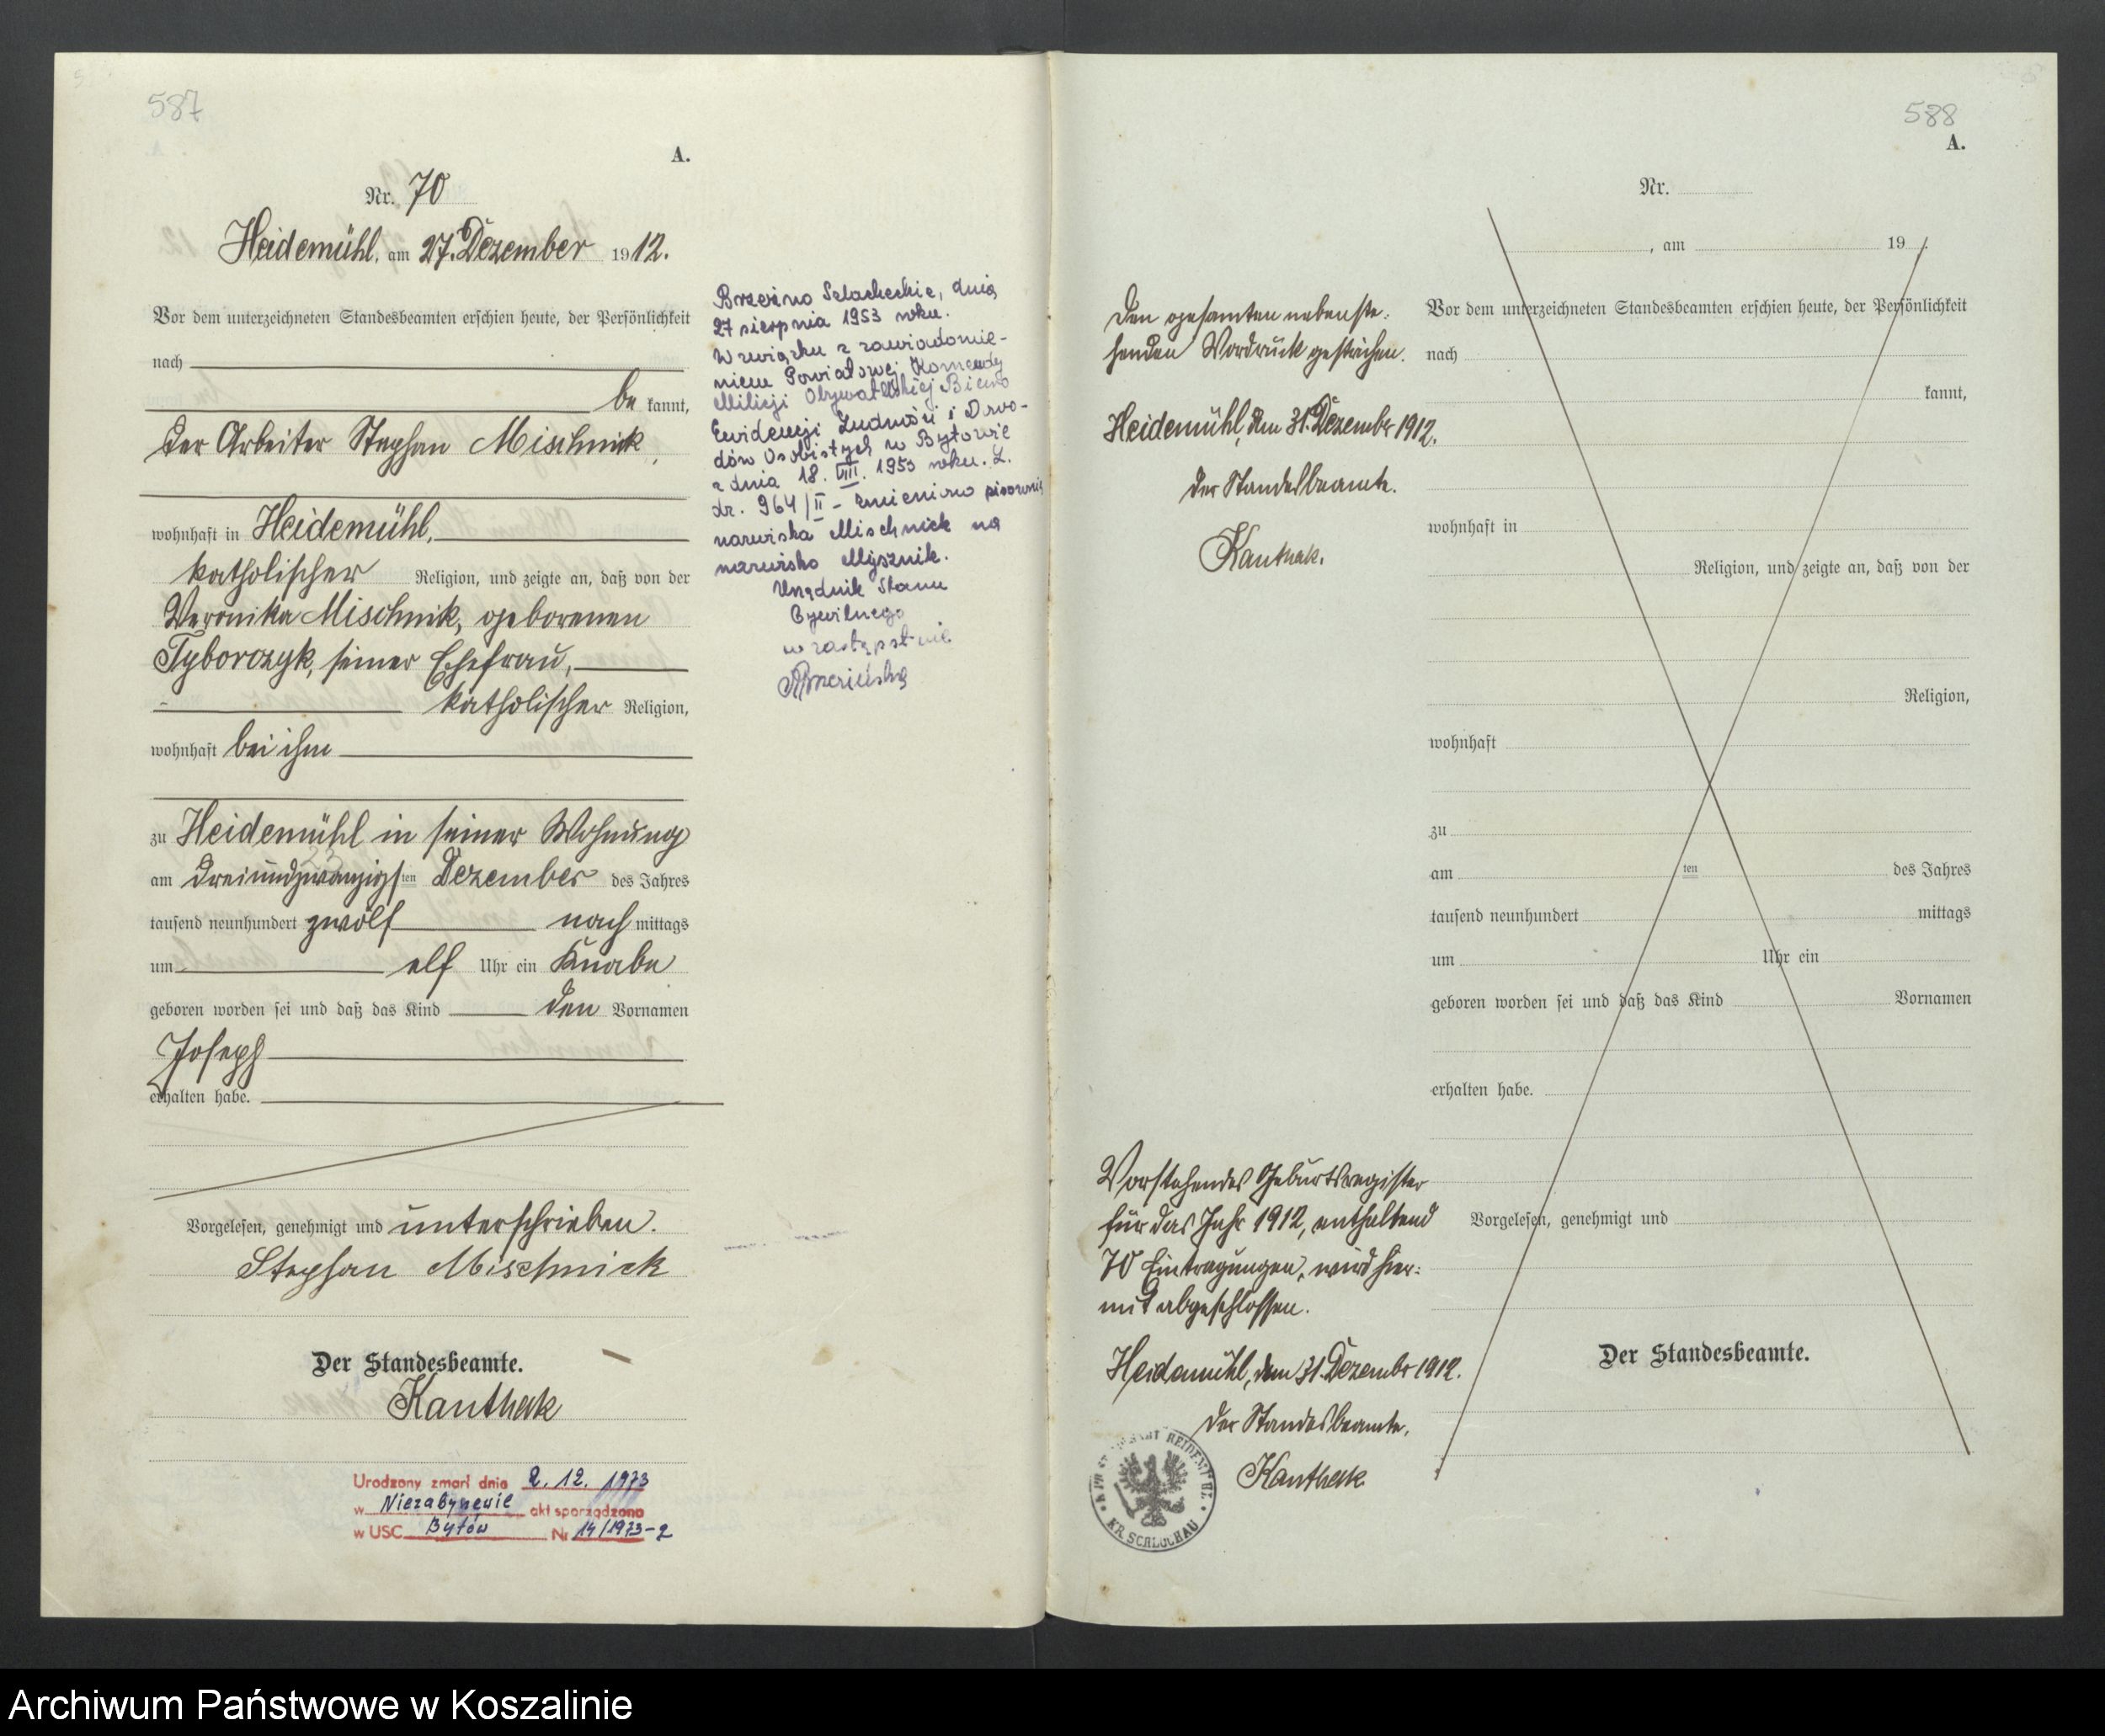 587
A.
Nr. 70
Heidemühl, am 27. Dezember 1912.
Vor dem unterzeichneten Standesbeamten erschien heute, der Persönlichkeit
nach
be kannt,
der Arbeiter Stephan Mischnik,
wohnhaft in Heidemühl,
katholischer Religion, und zeigte an, daß von der
Veronika Mischnik, geborenen
Tyborczyk, seiner Ehefrau,
katholischer Religion,
wohnhaft bei ihm
zu Heidemühl in seiner Wohnung
am dreiundzwanzigsten Dezember des Jahres
23
tausend neunhundert zwölf nach mittags
um elf Uhr ein Knabe
geboren worden sei und daß das Kind den Vornamen
Joseph
erhalten habe.
Vorgelesen, genehmigt und unterschrieben.
Stephan Mischnick
Der Standesbeamte.
Kanthak
Urodzony zmarł dnia 2. 12. 1973
w akt sporządzono
w USC Bytów Nr 14/1973-2
Brzeźno Szlacheckie, dnia
27 sierpnia 1953 roku.
W związku z zawiadomie-
niem Powiatowej Komendy
Milicji Obywatelskiej Biuro
Ewidencji Ludności i Dowo-
dów Osobistych w Bytowie
z dnia 18. VIII. 1953 roku. L.
dz. 964/II - zmieniono pisownię
nazwiska Mischnick na
nazwisko Mysznik.
Urzędnik Stanu
Cywilnego
w zastępstwie
588
A.
Nr.
, am 19
Den gesamten nebenste-
henden Vordruck gestrichen.
Heidemühl, den 31. Dezember 1912.
Der Standesbeamte.
Kanthak.
Vor dem unterzeichneten Standesbeamten erschien heute, der Persönlichkeit
nach
kannt,
wohnhaft in
Religion, und zeigte an, daß von der
Religion,
wohnhaft
zu
am ten des Jahres
tausend neunhundert mittags
um Uhr ein
geboren worden sei und daß das Kind Vornamen
erhalten habe.
Vorgelesen, genehmigt und
Der Standesbeamte.
Vorstehendes Geburtsregister
für das Jahr 1912, enthaltend
70 Eintragungen, wird hier-
mit abgeschlossen.
Heidemühl, den 31. Dezember 1912.
Der Standesbeamte.
Kanthak
HEIDEMÜHL
KR. SCHLOCHAU
Archiwum Państwowe w Koszalinie